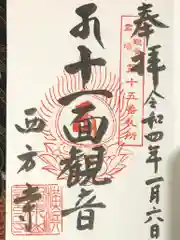 奉拝
令和四年一月六日
第十五番札所
十一面觀音
西方寺